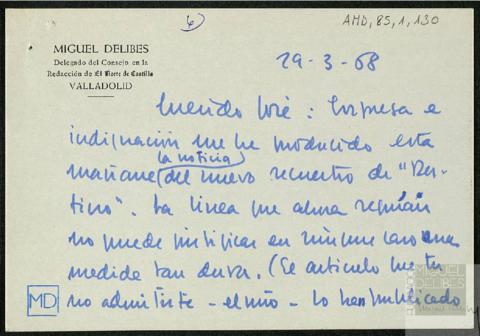 (6)
AMD, 85, 1, 130
MIGUEL DELIBES
Delegado del Consejo en la
Redacción de El Norte de Castilla
VALLADOLID
29-3-68
Querido José: Sorpresa e
indignación me ha producido esta
mañana (la noticia) del nuevo secuestro de "Des-
tino". La línea que ahora seguían
no puede justificar en ningún caso una
medida tan dura. (El artículo que tú
no admitiste - el mío - lo han publicado
MD
MIGUEL
DELIBES